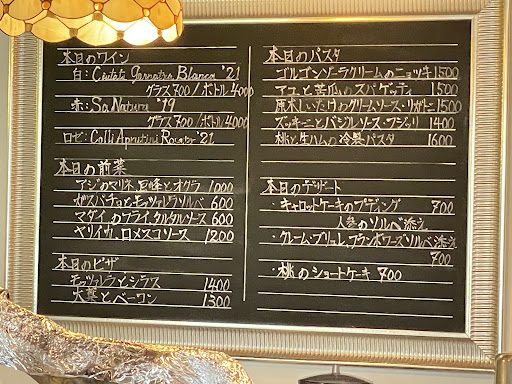 本日のワイン
白: Ciutats Garnatxa Blanca '21
グラス700/ボトル4000
赤: Sa Natura '19
グラス700/ボトル4000
ロゼ: Colli Aprutini Rosato '21
本日の前菜
アジのマリネ、巨峰とオクラ 1000
ガスパチョとモッツァレラソルベ 600
マダイのフライ、タルタルソース 600
ヤリイカ、ロメスコソース 1200
本日のピザ
モッツァレラとシラス 1400
大葉とベーコン 1300
本日のパスタ
ゴルゴンゾーラクリームのニョッキ 1500
アユと苦瓜のスパゲッティ 1500
原木しいたけのクリームソース・リガトーニ 1500
ズッキーニとバジルソース、フジッリ 1400
桃と生ハムの冷製パスタ 1600
本日のデザート
・キャロットケーキのプディング 700
人参のソルベ添え
・クレーム・ブリュレ、フランボワーズソルベ添え
700
・桃のショートケーキ 700